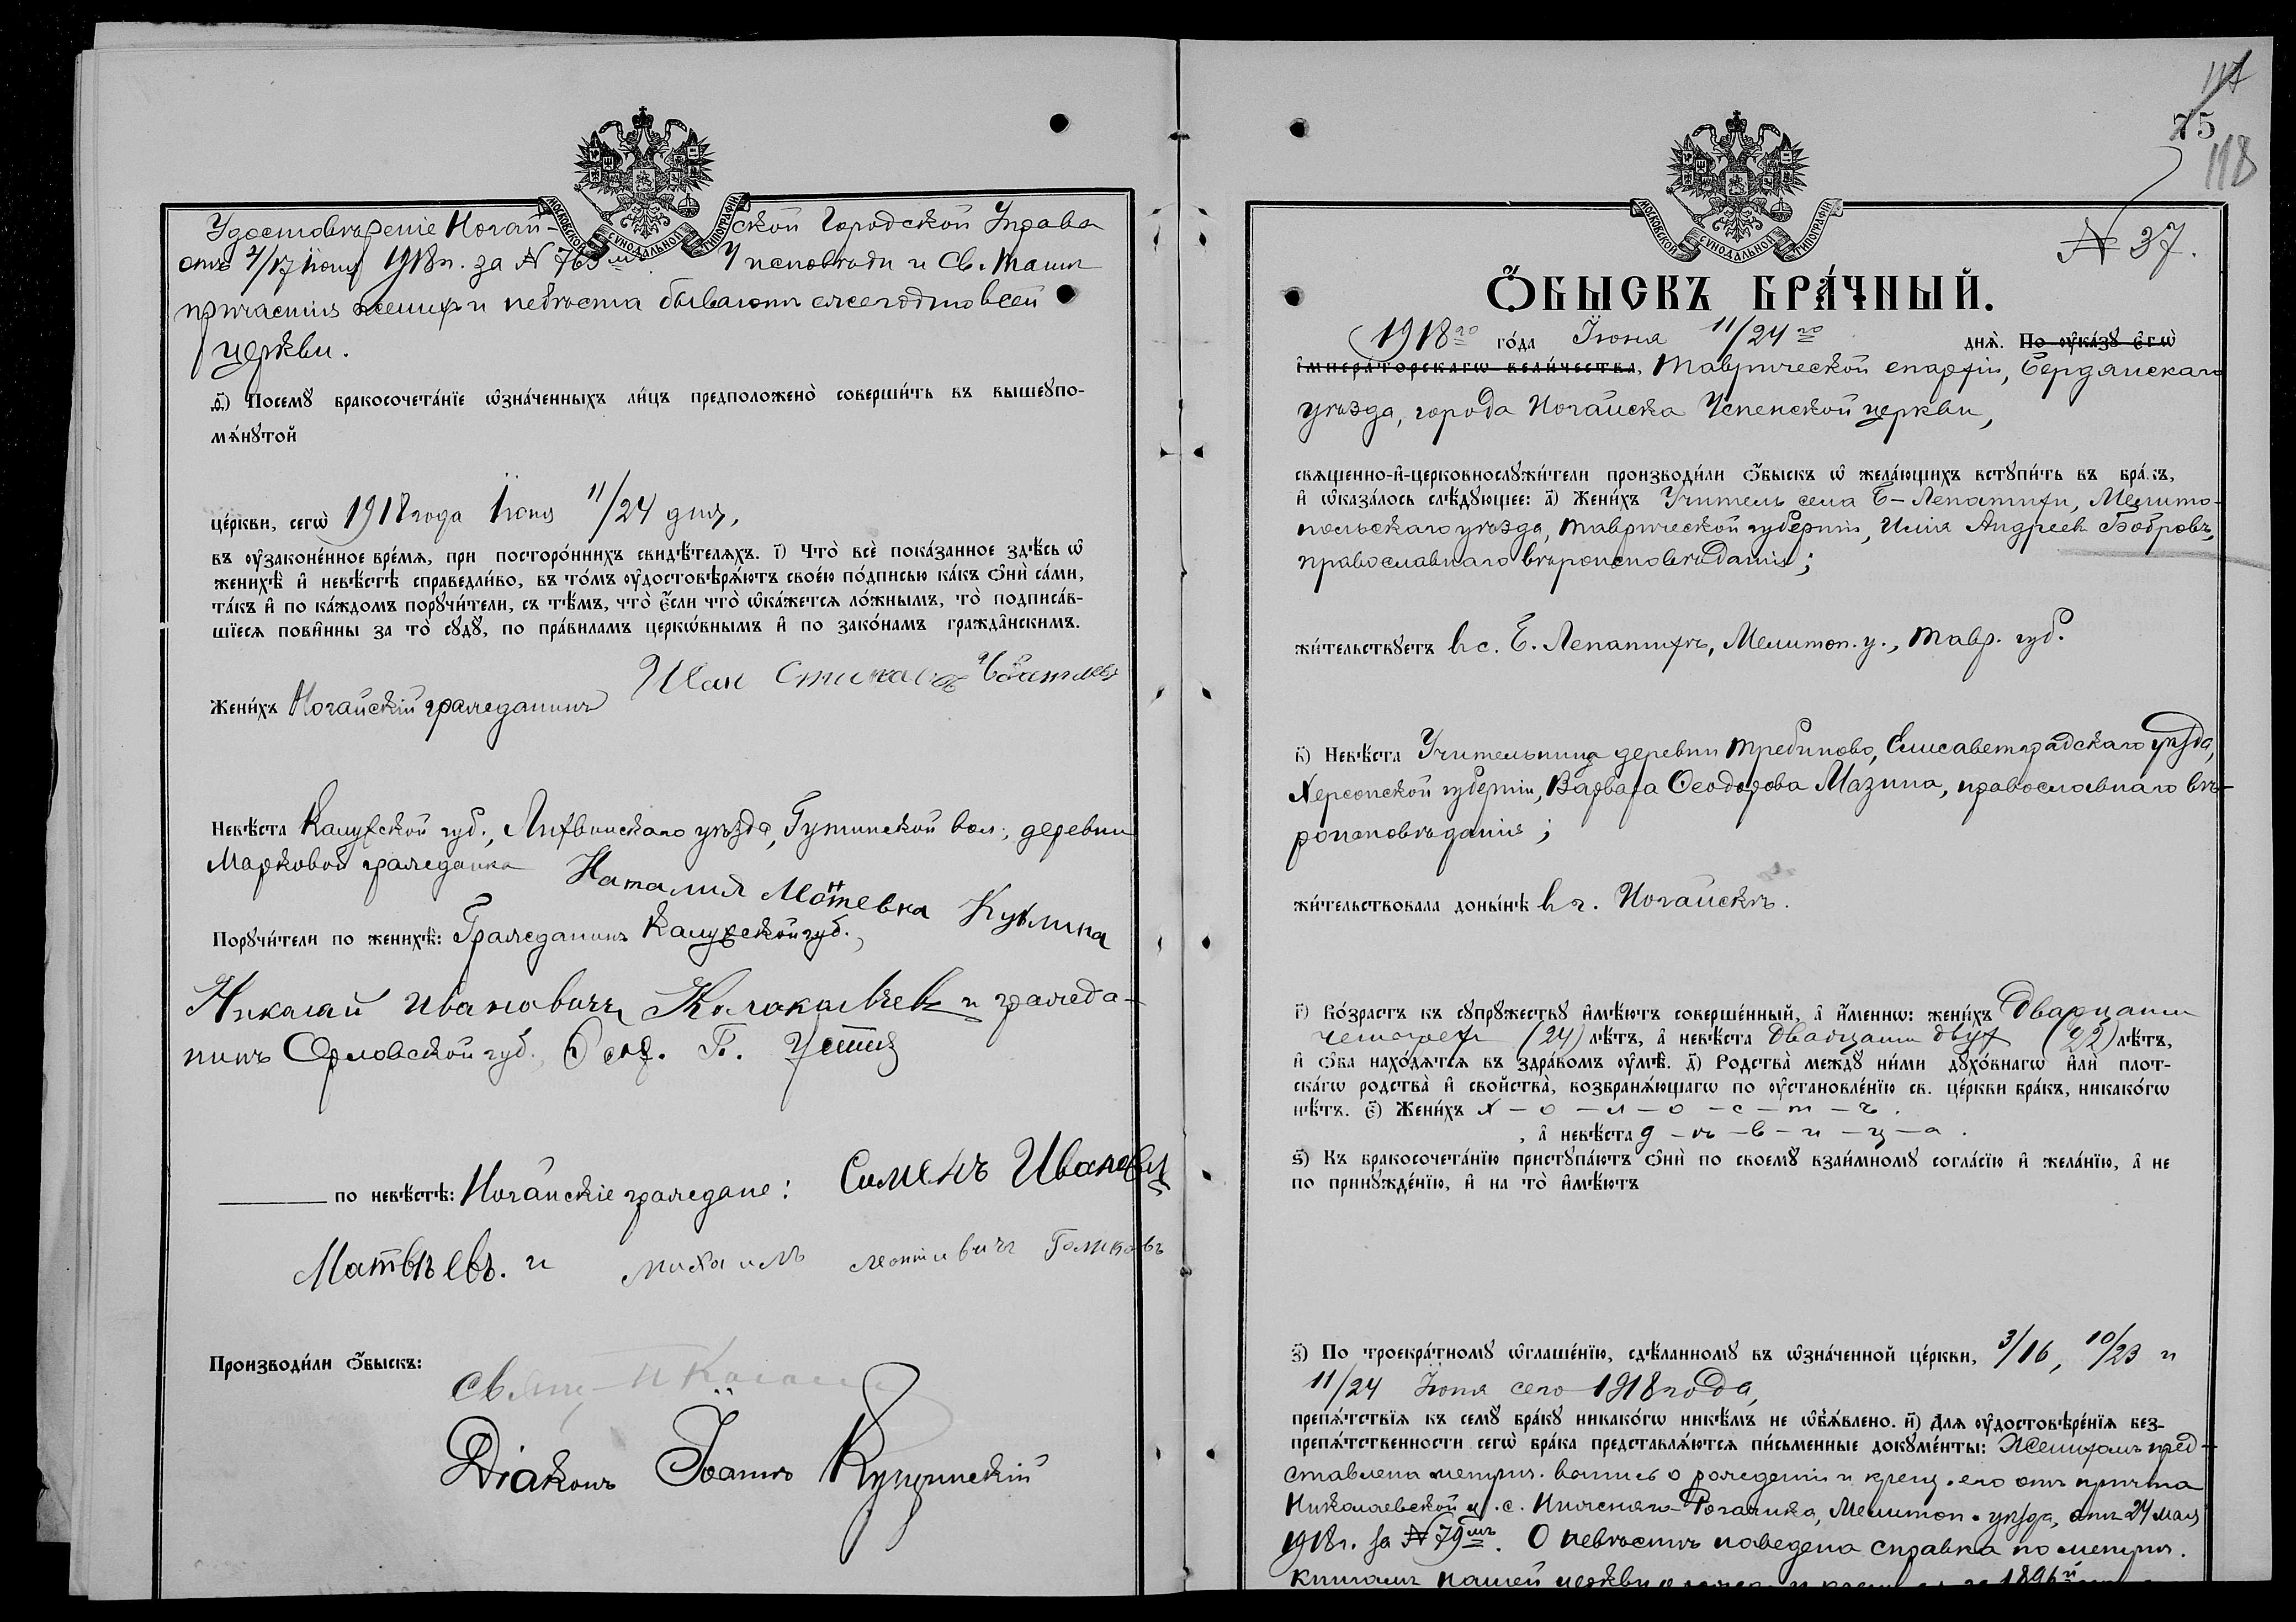 Удостовѣреніе Ногай-ской Городской Управы
отъ 4/17 іюня 1918 г. за № 763 мъ У исповѣди и Св. Таинъ
причастія женихъ и невѣста бываютъ ежегодно в сей
церкви.
д҃) Посемꙋ бракосочета́нїе ѡзна́ченныхъ ли́цъ предположено̀ соверши́ть въ вышеꙋпо-
мѧ́нꙋтой
це́ркви, сегѡ̀ 1918 года Іюня 11/24 дня,
въ ᲂу҆законе́нное вре́мѧ, при посторо́ннихъ свидѣ́телѧхъ. і҃) Что̀ всѐ пока́занное здѣ́сь ѡ҆
женихѣ̀ и҆ невѣ́стѣ справедли́во, въ то́мъ ᲂу҆достовѣрѧ́ютъ свое́ю по́дписью ка́къ ѻ҆нѝ са́ми,
та́къ и҆ по ка́ждомъ порꙋчи́тели, съ тѣ́мъ, что̀ є҆́сли что̀ ѡ҆ка́жетсѧ ло́жнымъ, то̀ подписа́в-
шїесѧ пови́нны за то̀ сꙋдꙋ̀, по пра́виламъ церкѡ́внымъ и҆ по зако́намъ гражда̑нскимъ.
Жени́хъ Ногайскій гражданинъ Иван
Невѣ́ста Калужской губ., Лихвинскаго уѣзда, вол., деревни
Марковой гражданка Наталия
Порꙋчи́тели по женихѣ̀: Гражданинъ Калужской губ.,
Николай Ивановичъ и гражда-
нинъ Орловской губ.
по невѣ́стѣ: Ногайскіе граждане: Сименъ Ивановъ
Матвѣевъ. и михаилъ леонтиевичъ
Производи́ли ѻ҆́быскъ:
Свящ.
Діаконъ Іоаннъ
МОСКОВСКОЙ СѴНОДАЛЬНОЙ ТИПОГРАФІИ
117
75
118
МОСКОВСКОЙ СѴНОДАЛЬНОЙ ТИПОГРАФІИ
№ 37.
Ѻ҆́БЫСКЪ БРА́ЧНЫЙ.
1918 го го́да Іюня 11/24 го днѧ̀. По ᲂу҆ка́зꙋ є҆гѡ̀
і҆мпера́торскагѡ вели́чества, Таврической епархіи, Бердянскаго
уѣзда, города Ногайска Успенской церкви,
свѧщенно-и҆-церковнослꙋжи́тели производи́ли ѻ҆́быскъ ѡ҆ жела́ющихъ встꙋпи́ть въ бра́къ,
и҆ ѡ҆каза́лось слѣ́дꙋющее: а҃) Жени́хъ Учитель села Б-Лепатихи, Мелито-
польскаго уѣзда, Таврической губерніи, Илія Андреев Бобровъ,
православнаго вѣроисповѣданія;
жи́тельствꙋетъ в с. Б. Лепатихѣ, Мелитоп. у., Тавр. губ.
в҃) Невѣ́ста Учительница деревни Требиново, Елисаветградскаго уѣзда,
Херсонской губерніи, Варвара Ѳеодорова Мазина, православнаго вѣ-
роисповѣданія;
жи́тельствовала доны́нѣ в г. Ногайскѣ.
г҃) Во́зрастъ къ сꙋпрꙋ́жествꙋ и҆мѣ́ютъ соверше́нный, а҆ и҆́меннѡ: жени́хъ Двадцати
четырехъ (24) лѣ́тъ, а҆ невѣ́ста двадцати двухъ (22) лѣ́тъ,
и҆ ѻ҆́ба нахо́дѧтсѧ въ здра́вомъ ᲂу҆мѣ̀. д҃) Родства̀ междꙋ̀ ни́ми дꙋхо́внагѡ и҆лѝ плот-
ска́гѡ родства̀ и҆ свойства̀, возбранѧ́ющагѡ по ᲂу҆становле́нїю св. це́ркви бра́къ, никако́гѡ
нѣ́тъ. є҃) Жени́хъ х – о – л – о – с – т – ъ.
, а҆ невѣ́ста д – ѣ – в – и – ц – а.
ѕ҃) Къ бракосочета́нїю пристꙋпа́ютъ ѻ҆нѝ по своемꙋ̀ взаи́мномꙋ согла́сїю и҆ жела́нїю, а҆ не
по принꙋжде́нїю, и҆ на то̀ и҆мѣ́ютъ
з҃) По троекра́тномꙋ ѡ҆глаше́нїю, сдѣ́ланномꙋ въ ѡ҆зна́ченной це́ркви, 3/16, 10/23 и
11/24 Іюня сего 1918 года,
препѧ́тствїѧ къ семꙋ̀ бра́кꙋ никако́гѡ никѣ́мъ не ѡ҆б̾ѧ́влено. и҃) Длѧ ᲂу҆достовѣре́нїѧ без-
препѧ́тственности сегѡ̀ бра́ка представлѧ́ютсѧ пи́сьменные докꙋме́нты: Женихомъ пред-
ставлена метрич. выпись о рожденіи и крещ. его отъ причта
Николаевской ц. с. Нижняго-Рогачика, Мелитоп. уѣзда, отъ 24 мая
1918 г. за № 79 мъ. О невѣстѣ наведена справка по метрич.
книгамъ нашей церкви 1896 й